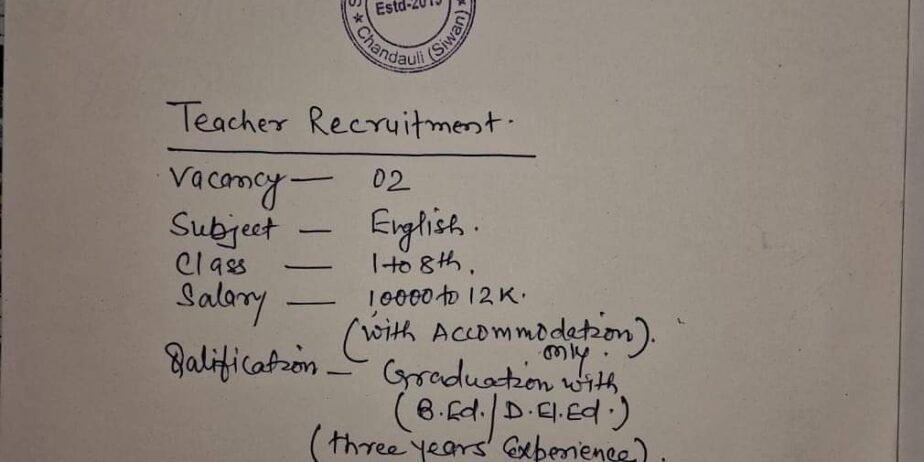 Estd-2015
★ Chandauli (Siwan) ★
Teacher Recruitment.
Vacancy — 02
Subject — English.
Class — 1 to 8th.
Salary — 10000 to 12K.
(with Accommodation).
only.
Qalification — Graduation with
(B.Ed./D.El.Ed.)
(three years Experience).